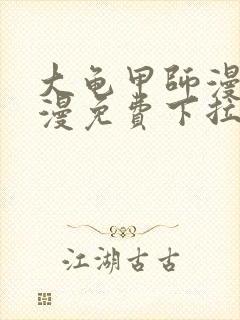 大龟甲師漫
漫免費下拉
江湖古古